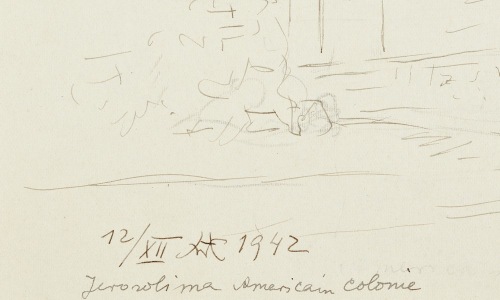 12/XII 1942
Jerozolima American colonie